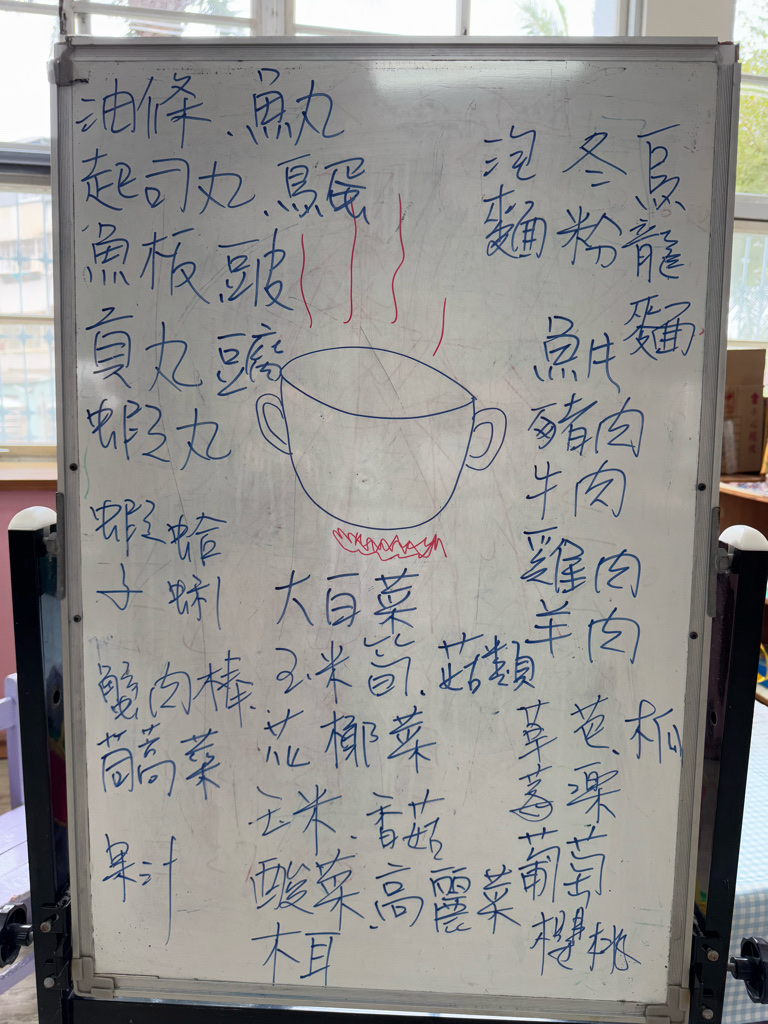 油條、魚丸
起司丸、鳥蛋
魚板 豆皮
貢丸 豆腐
蝦丸
蝦子
蛤蜊
蟹肉棒
茼蒿菜
果汁
大白菜
玉米筍、菇類
花椰菜
玉米、香菇
酸菜、高麗菜
木耳
泡麵
冬粉
烏龍麵
魚片
豬肉
牛肉
雞肉
羊肉
草莓
芭樂
葡萄
櫻桃